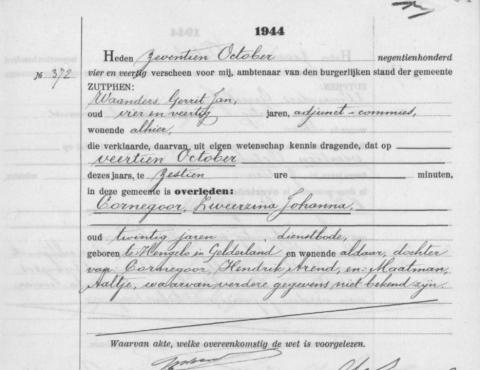 1944
Heden Zeventien October negentienhonderd
№ 372 vier en veertig verscheen voor mij, ambtenaar van den burgerlijken stand der gemeente
ZUTPHEN:
Waanders Gerrit Jan,
oud vier en veertig jaren, adjunct-commies,
wonende alhier,
die verklaarde, daarvan uit eigen wetenschap kennis dragende, dat op
veertien October
dezes jaars, te Zestien ure minuten,
in deze gemeente is overleden:
Cornegoor, Zweerzina Johanna,
oud twintig jaren dienstbode,
geboren te Hengelo in Gelderland en wonende aldaar, dochter
van Cornegoor, Hendrik Arend, en Maalman,
Aaltje, waarvan verdere gegevens niet bekend zijn.
Waarvan akte, welke overeenkomstig de wet is voorgelezen.